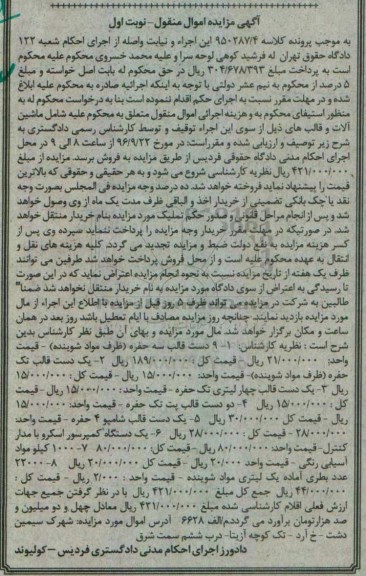 آگهی مزایده اموال منقول - نوبت اول
به موجب پرونده کلاسه ۹۵۰۲۸۷/۴ این اجراء و نیابت واصله از اجرای احکام شعبه ۱۲۲
دادگاه حقوق تهران له فرشید کوهی لوحه سرا و علیه محمد خسروی محکوم علیه محکوم
است به پرداخت مبلغ ۳۰۴/۶۷۸/۳۹۳ ریال در حق محکوم له بابت اصل خواسته و مبلغ
۵ درصد از محکوم به نیم عشر دولتی با توجه به اینکه اجرائیه صادره به محکوم علیه ابلاغ
شده و در مهلت مقرر نسبت به اجرای حکم اقدام ننموده است بنا به درخواست محکوم له به
منظور استیفای محکوم به و هزینه اجرائی اموال منقول متعلق به محکوم علیه شامل ماشین
آلات و قالب های ذیل از سوی این اجراء توقیف و توسط کارشناس رسمی دادگستری به
شرح زیر توصیف و ارزیابی شده و مقرر است: در مورخ ۹۶/۹/۲۲ از ساعت ۸ الی ۹ در محل
اجرای احکام مدنی دادگاه حقوقی فردیس از طریق مزایده به فروش برسد. مزایده از مبلغ
۴۲۱/۰۰۰/۰۰۰ ریال نظریه کارشناسی شروع می شود و به هر حقیقی و حقوقی که بالاترین
قیمت را پیشنهاد نماید فروخته خواهد شد. ده درصد وجه مزایده فی المجلس بصورت وجه
نقد یا چک بانکی تضمینی از خریدار اخذ و الباقی ظرف مدت یک ماه از وی وصول خواهد
شد و پس از انجام مراحل قانونی و صدور حکم تملیک مورد مزایده بنام خریدار منتقل خواهد
شد. در صورتیکه در مهلت مقرر خریدار وجه مزایده را پرداخت ننماید سپرده وی پس از
کسر هزینه مزایده به نفع دولت ضبط و مزایده تجدید می گردد. کلیه هزینه های نقل و
انتقال به عهده محکوم علیه است و از محل فروش پرداخت خواهد شد. طرفین می توانند
ظرف یک هفته از تاریخ مزایده نسبت به نحوه انجام مزایده اعتراض نماید که در این صورت
تا رسیدگی به اعتراض از سوی دادگاه مورد مزایده به نام خریدار منتقل نخواهد شد ضمناً"
طالبین به شرکت در مزایده می تواند ظرف ۵ روز قبل از مزایده با اطلاع این اجراء از مال
مورد مزایده بازدید نمایند. چنانچه روز مزایده مصادف با ایام تعطیل باشد روز بعد در همان
ساعت و مکان برگزار خواهد شد. مال مورد مزایده و بهای آن طبق نظر کارشناس بدین
شرح است : نظریه کارشناس: ۱- ۹ دست قالب سه حفره (ظرف مواد شوینده) - قیمت
واحد: ۲۱/۰۰۰/۰۰۰ ریال - قیمت کل: ۱۸۹/۰۰۰/۰۰۰ ریال ۲- یک دست قالب تک
حفره (ظرف مواد شوینده)- قیمت واحد: ۱۵/۰۰۰/۰۰۰ ریال - قیمت کل: ۱۵/۰۰۰/۰۰۰
ریال ۳- یک دست قالب چهار لیتری تک حفره - قیمت واحد: ۱۵/۰۰۰/۰۰۰ ریال - قیمت
کل: ۱۵/۰۰۰/۰۰۰ ریال ۴- دو دست قالب پت تک حفره - قیمت واحد: ۱۵/۰۰۰/۰۰۰
ریال - قیمت کل ۳۰/۰۰۰/۰۰۰ ریال ۵- یک دست قالب شامپو ۴ حفره - قیمت واحد:
۲۸/۰۰۰/۰۰۰ - قیمت کل : ۲۸/۰۰۰/۰۰۰ ریال ۶- یک دستگاه کمپرسور اسکرو با مدار
کنترل- قیمت واحد: ۸۰/۰۰۰/۰۰۰ ریال - قیمت کل: ۸۰/۰۰۰/۰۰۰ ۷- ۱۰۰۰ کیلو مواد
آسیابی رنگی - قیمت واحد ۲۰/۰۰۰ ریال - قیمت کل ۲۰/۰۰۰/۰۰۰ ریال ۸- ۲۲۰۰۰
عدد بطری آماده یک لیتری مواد شوینده - قیمت واحد : ۲/۰۰۰ ریال - قیمت کل :
۴۴/۰۰۰/۰۰۰ ریال جمع کل مبلغ ۴۲۱/۰۰۰/۰۰۰ ریال با در نظر گرفتن جمیع جهات
ارزش فعلی اقلام کارشناسی شده مبلغ ۴۲۱/۰۰۰/۰۰۰ ریال معادل چهل و دو میلیون و
صد هزار تومان برآورد می گردد.م/الف ۶۶۲۸ آدرس اموال مورد مزایده: شهرک سیمین
دشت - خ آرد - تک کوچه آزیتا- درب ششم سمت شرق
دادورز اجرای احکام مدنی دادگستری فردیس - کولیوند